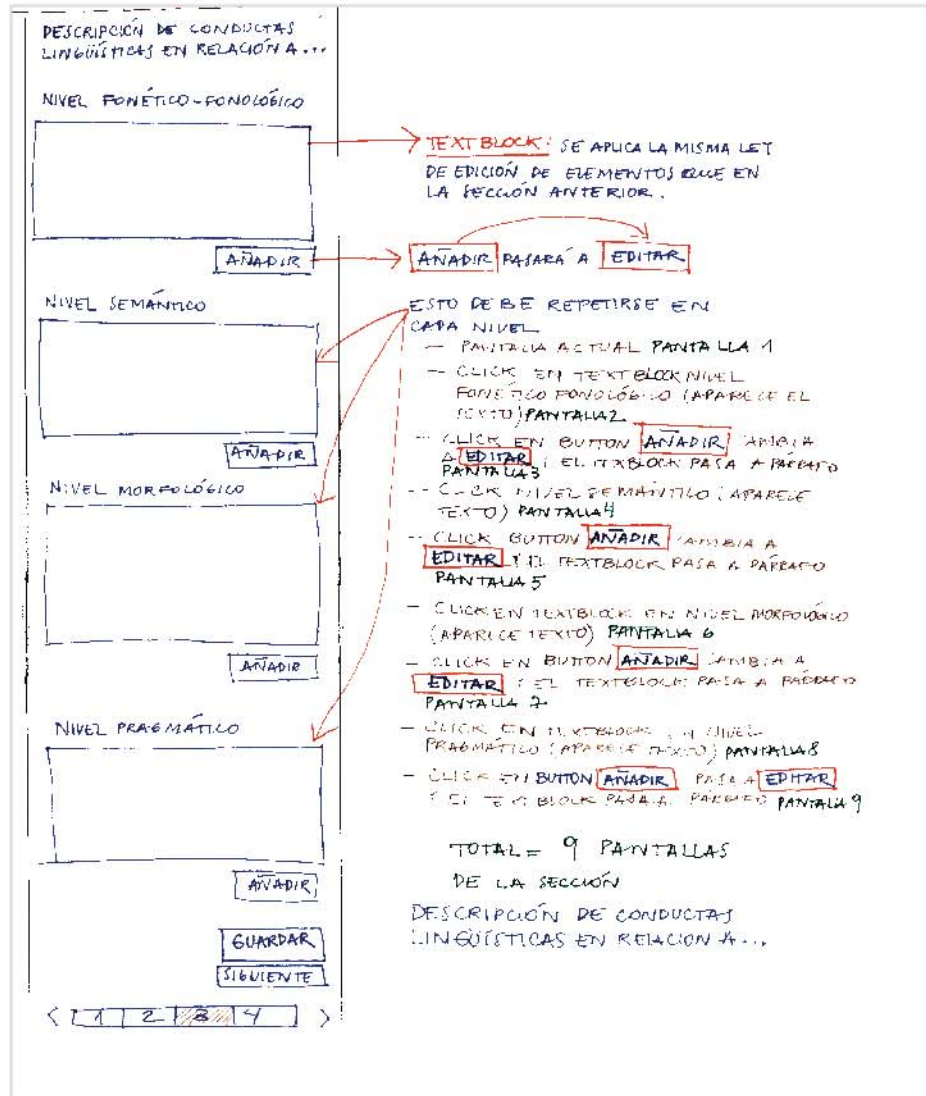 DESCRIPCIÓN DE CONDUCTAS
LINGÜÍSTICAS EN RELACIÓN A...
NIVEL FONÉTICO-FONOLÓGICO
AÑADIR
NIVEL SEMÁNTICO
AÑADIR
NIVEL MORFOLÓGICO
AÑADIR
NIVEL PRAGMÁTICO
AÑADIR
GUARDAR
SIGUIENTE
< 1 2 3 4 >
TEXT BLOCK: SE APLICA LA MISMA LEY
DE EDICIÓN DE ELEMENTOS QUE EN
LA SECCIÓN ANTERIOR.
AÑADIR PASARÁ A EDITAR
ESTO DEBE REPETIRSE EN
CADA NIVEL
- PANTALLA ACTUAL PANTALLA 1
- CLICK EN TEXT BLOCK NIVEL
FONÉTICO FONOLÓGICO (APARECE EL
TEXTO) PANTALLA 2
- CLICK EN BUTTON AÑADIR CAMBIA
A EDITAR Y EL TEXBLOCK PASA A PÁRRAFO
PANTALLA 3
- CLICK NIVEL SEMÁNTICO (APARECE
TEXTO) PANTALLA 4
- CLICK BUTTON AÑADIR CAMBIA A
EDITAR Y EL TEXTBLOCK PASA A PÁRRAFO
PANTALLA 5
- CLICK EN TEXTBLOCK EN NIVEL MORFOLÓGICO
(APARECE TEXTO) PANTALLA 6
- CLICK EN BUTTON AÑADIR CAMBIA A
EDITAR Y EL TEXTBLOCK PASA A PÁRRAFO
PANTALLA 7
- CLICK EN TEXTBLOCK EN NIVEL
PRAGMÁTICO (APARECE TEXTO) PANTALLA 8
- CLICK EN BUTTON AÑADIR PASA A EDITAR
Y EL TEXT BLOCK PASA A PÁRRAFO PANTALLA 9
TOTAL = 9 PANTALLAS
DE LA SECCIÓN
DESCRIPCIÓN DE CONDUCTAS
LINGÜÍSTICAS EN RELACIÓN A...